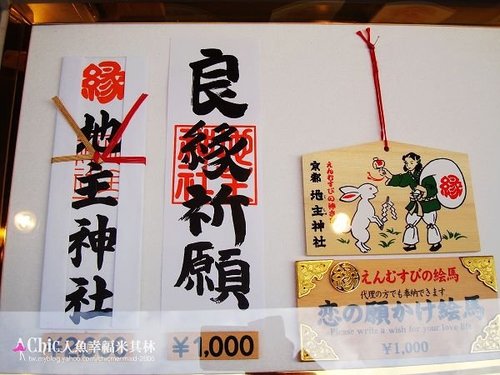 縁
地主神社
良縁祈願
¥1,000
えんむすびの神さま
京都 地主神社
縁
えんむすびの絵馬
代理の方でも奉納できます
恋の願かけ絵馬
-Please write a wish for your love life-
¥1,000
Chic人魚幸福米其林
tw.myblog.yahoo.com/chicmermaid-2006